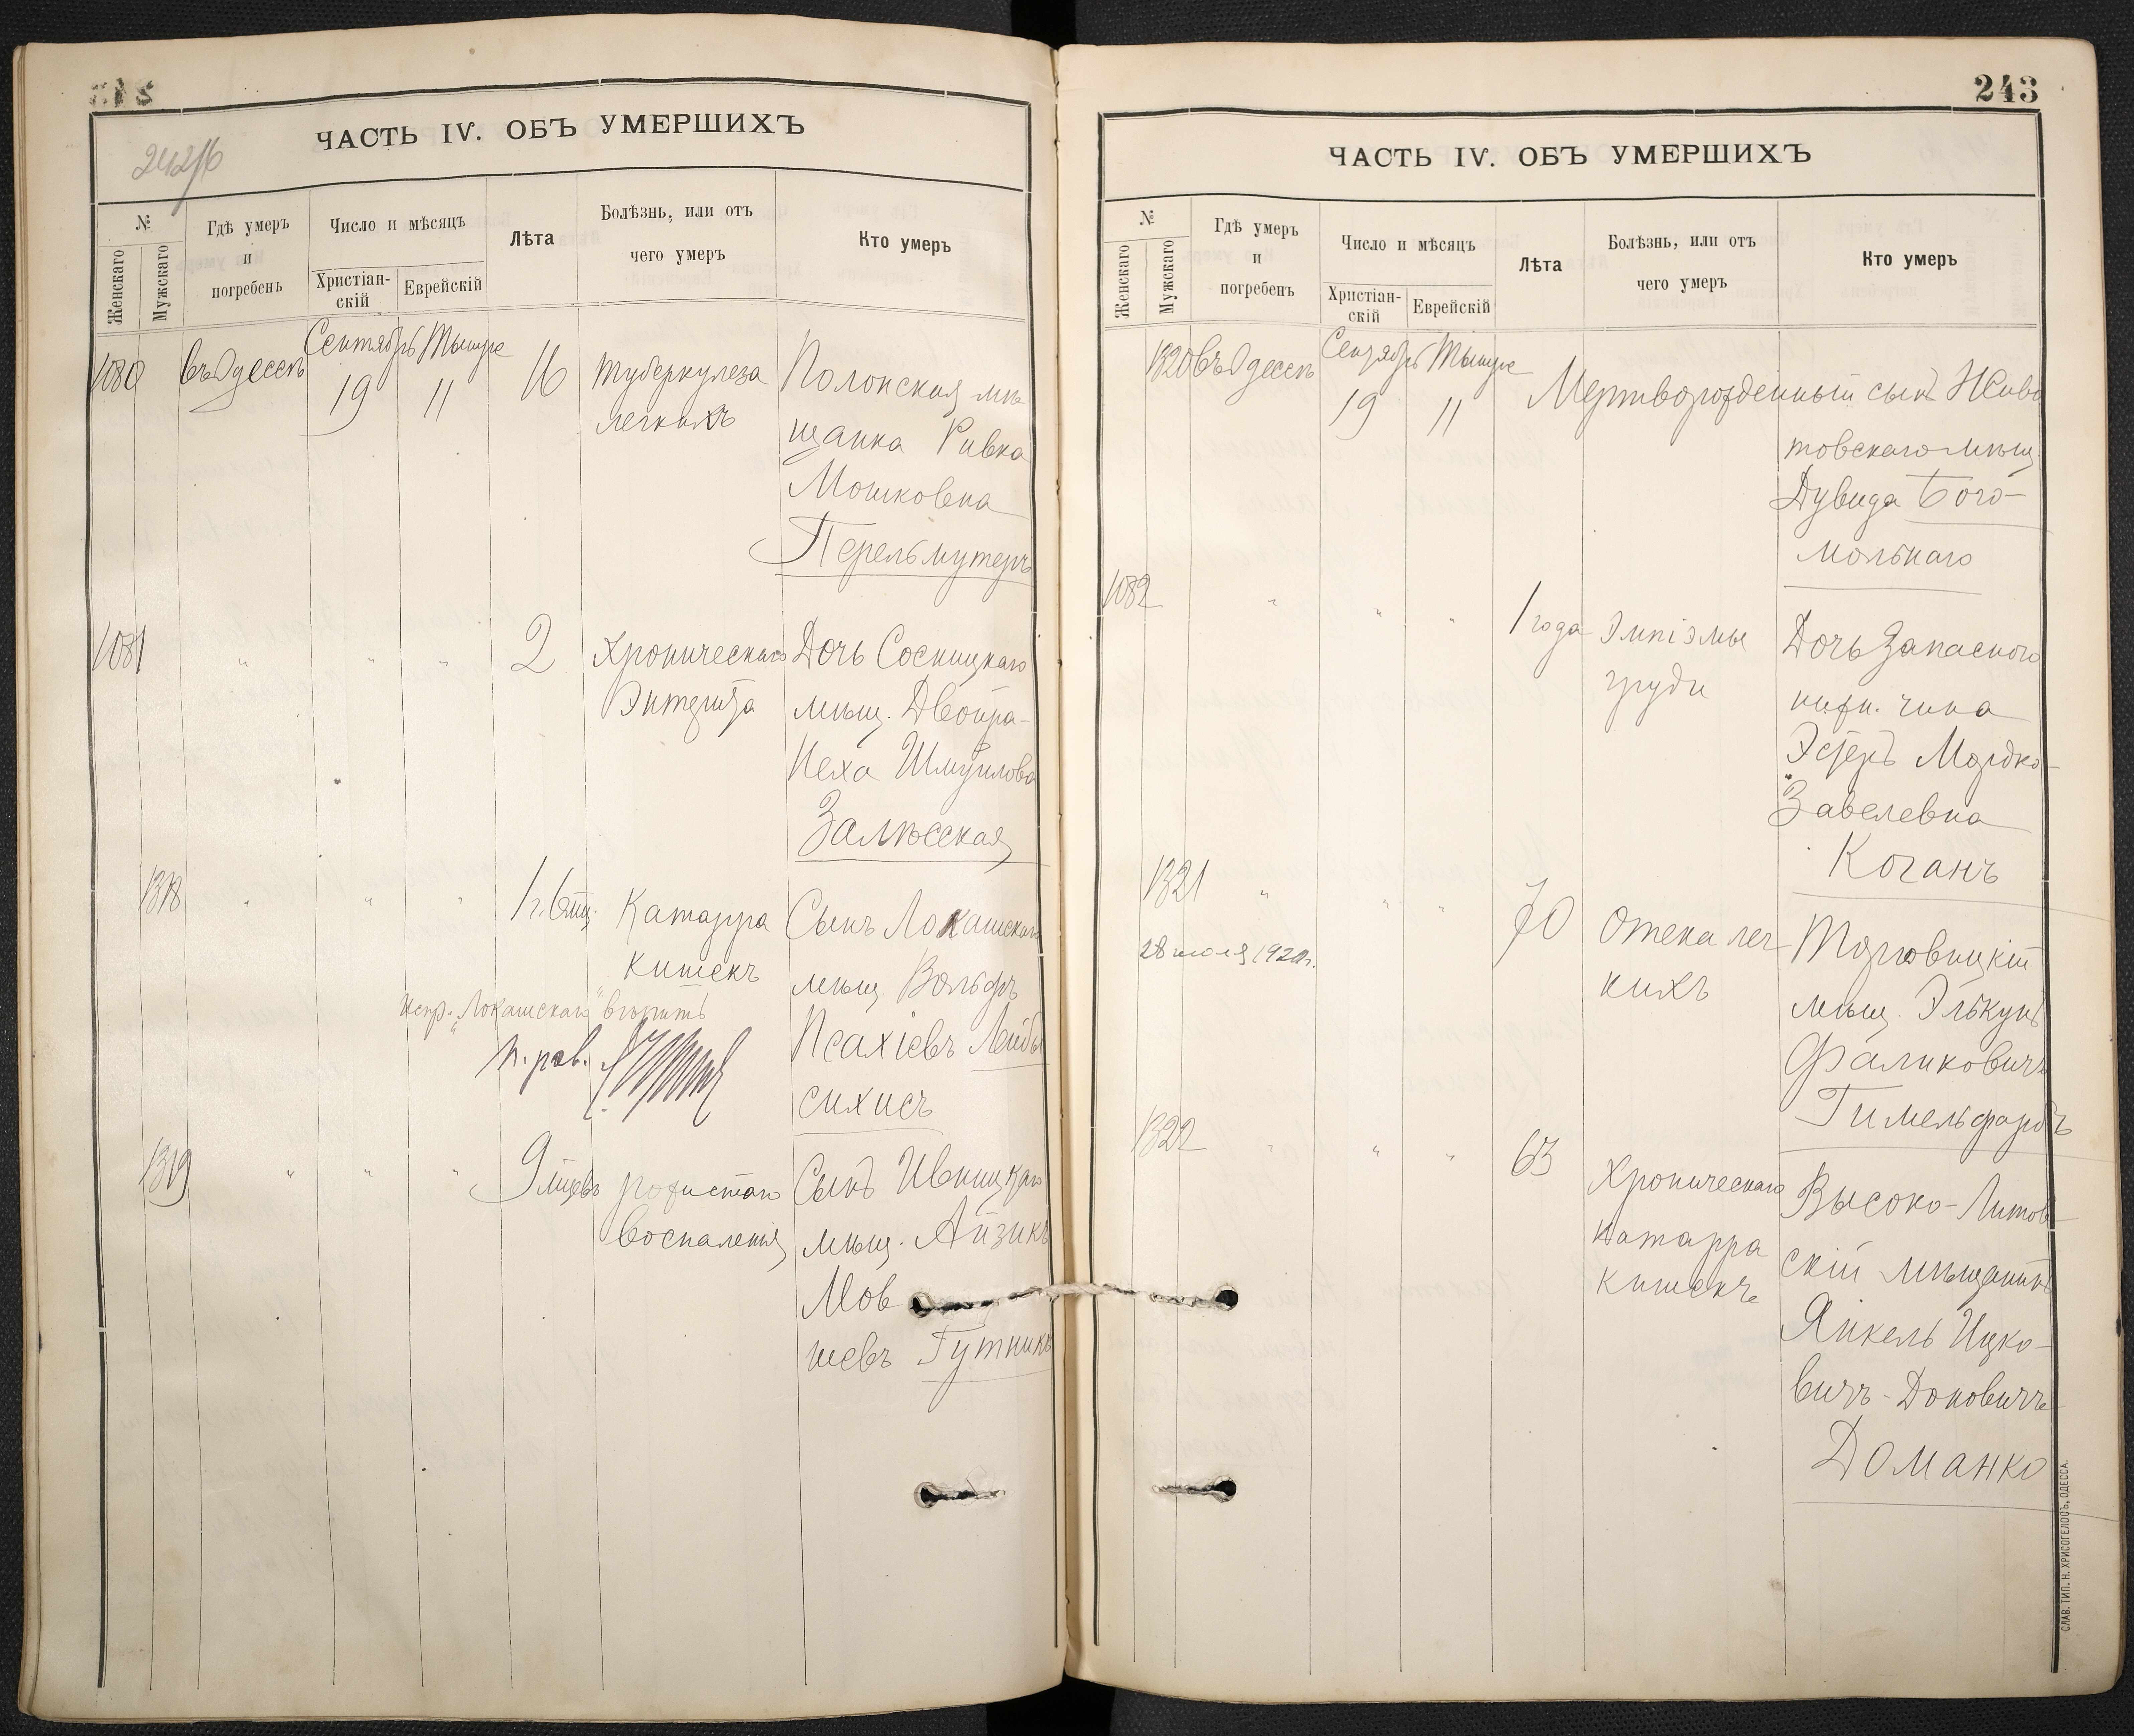 ЧАСТЬ IV. ОБЪ УМЕРШИХЪ
№
Женскаго
Мужскаго
Гдѣ умеръ
и
погребенъ
Число и мѣсяцъ
Христіан-
скій
Еврейскій
Лѣта
Болѣзнь, или отъ
чего умеръ
Кто умеръ
1080 въ Одессѣ Сентябрь 19 Тышре 11 16 Туберкулеза Полонская мѣ
легкихъ щанка Ривка
Мошковна
Перельмутеръ
1081 " " " 2 Хроническаго Дочь Сосницкаго
Энтерита мѣщ. Двойра-
Неха Шмуилова
Залѣсская
1318 " " " 1 г. 6 мц. Катарра Сынъ Локашскаго
кишекъ мѣщ. Вольфъ
Испр. „Локашскаго" вѣрить
п. рав. Псахіевъ Лейбы
сихисъ
1319 " " " 9 мцевъ рожистаго Сынъ Ивницкаго
воспаленія мѣщ. Айзикъ
Мов
шевъ Гутникъ
243
ЧАСТЬ IV. ОБЪ УМЕРШИХЪ
№
Женскаго
Мужскаго
Гдѣ умеръ
и
погребенъ
Число и мѣсяцъ
Христіан-
скій
Еврейскій
Лѣта
Болѣзнь, или отъ
чего умеръ
Кто умеръ
1320 въ Одессѣ Сентябрь 19 Тышре 11 Мертворожденный сынъ Живо
товскаго мѣщ.
Дувида Бого-
мольнаго
1082 " " " 1 года Эмпіэмы Дочь Запаснаго
груди нижн. чина
Эстеръ Мордко-
Завелевна
Коганъ
1321 " " " 70 Отека лег Торговицкій
28 июля 1920 г.
кихъ мѣщ. Элькунъ
Фаликовичъ
Гимельфарбъ
1322 " " " 63 Хроническаго Высоко-Литов
катарра скій мѣщанинъ
кишекъ Янкель Ицко-
вичъ-Доновичъ
Доманко
СЛАВ. ТИП. Н. ХРИСОГЕЛОСЪ, ОДЕССА.